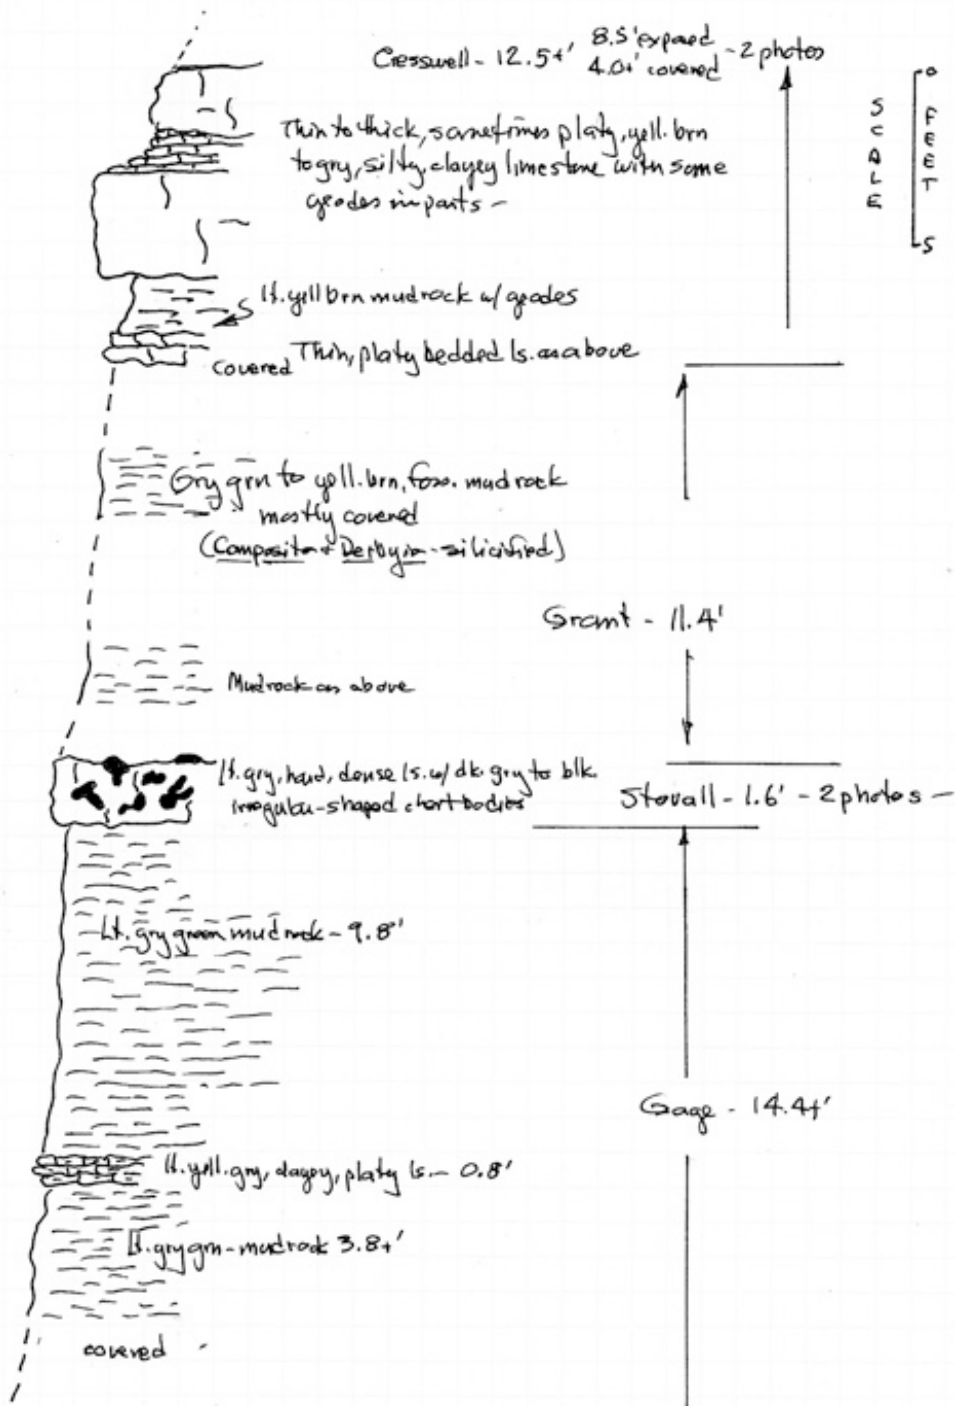 Cresswell - 12.5+' 8.5' exposed 4.0+' covered - 2 photos
SCALE
FEET
0
5
Thin to thick, sometimes platy, yell. brn
to gry, silty, clayey limestone with some
geodes in parts -
lt. yell brn mudrock w/ geodes
Thin, platy bedded ls. as above
covered
Gry grn to yell. brn, foss. mudrock
mostly covered
(Composita + Derbyia - silicified)
Grant - 11.4'
Mudrock as above
lt. gry, hard, dense ls. w/ dk. gry to blk.
irregular-shaped chert bodies
Stovall - 1.6' - 2 photos -
Lt. gry green mudrock - 9.8'
Gage - 14.4+'
lt. yell. gry, clayey, platy ls. - 0.8'
Lt. gry grn - mudrock 3.8+'
covered